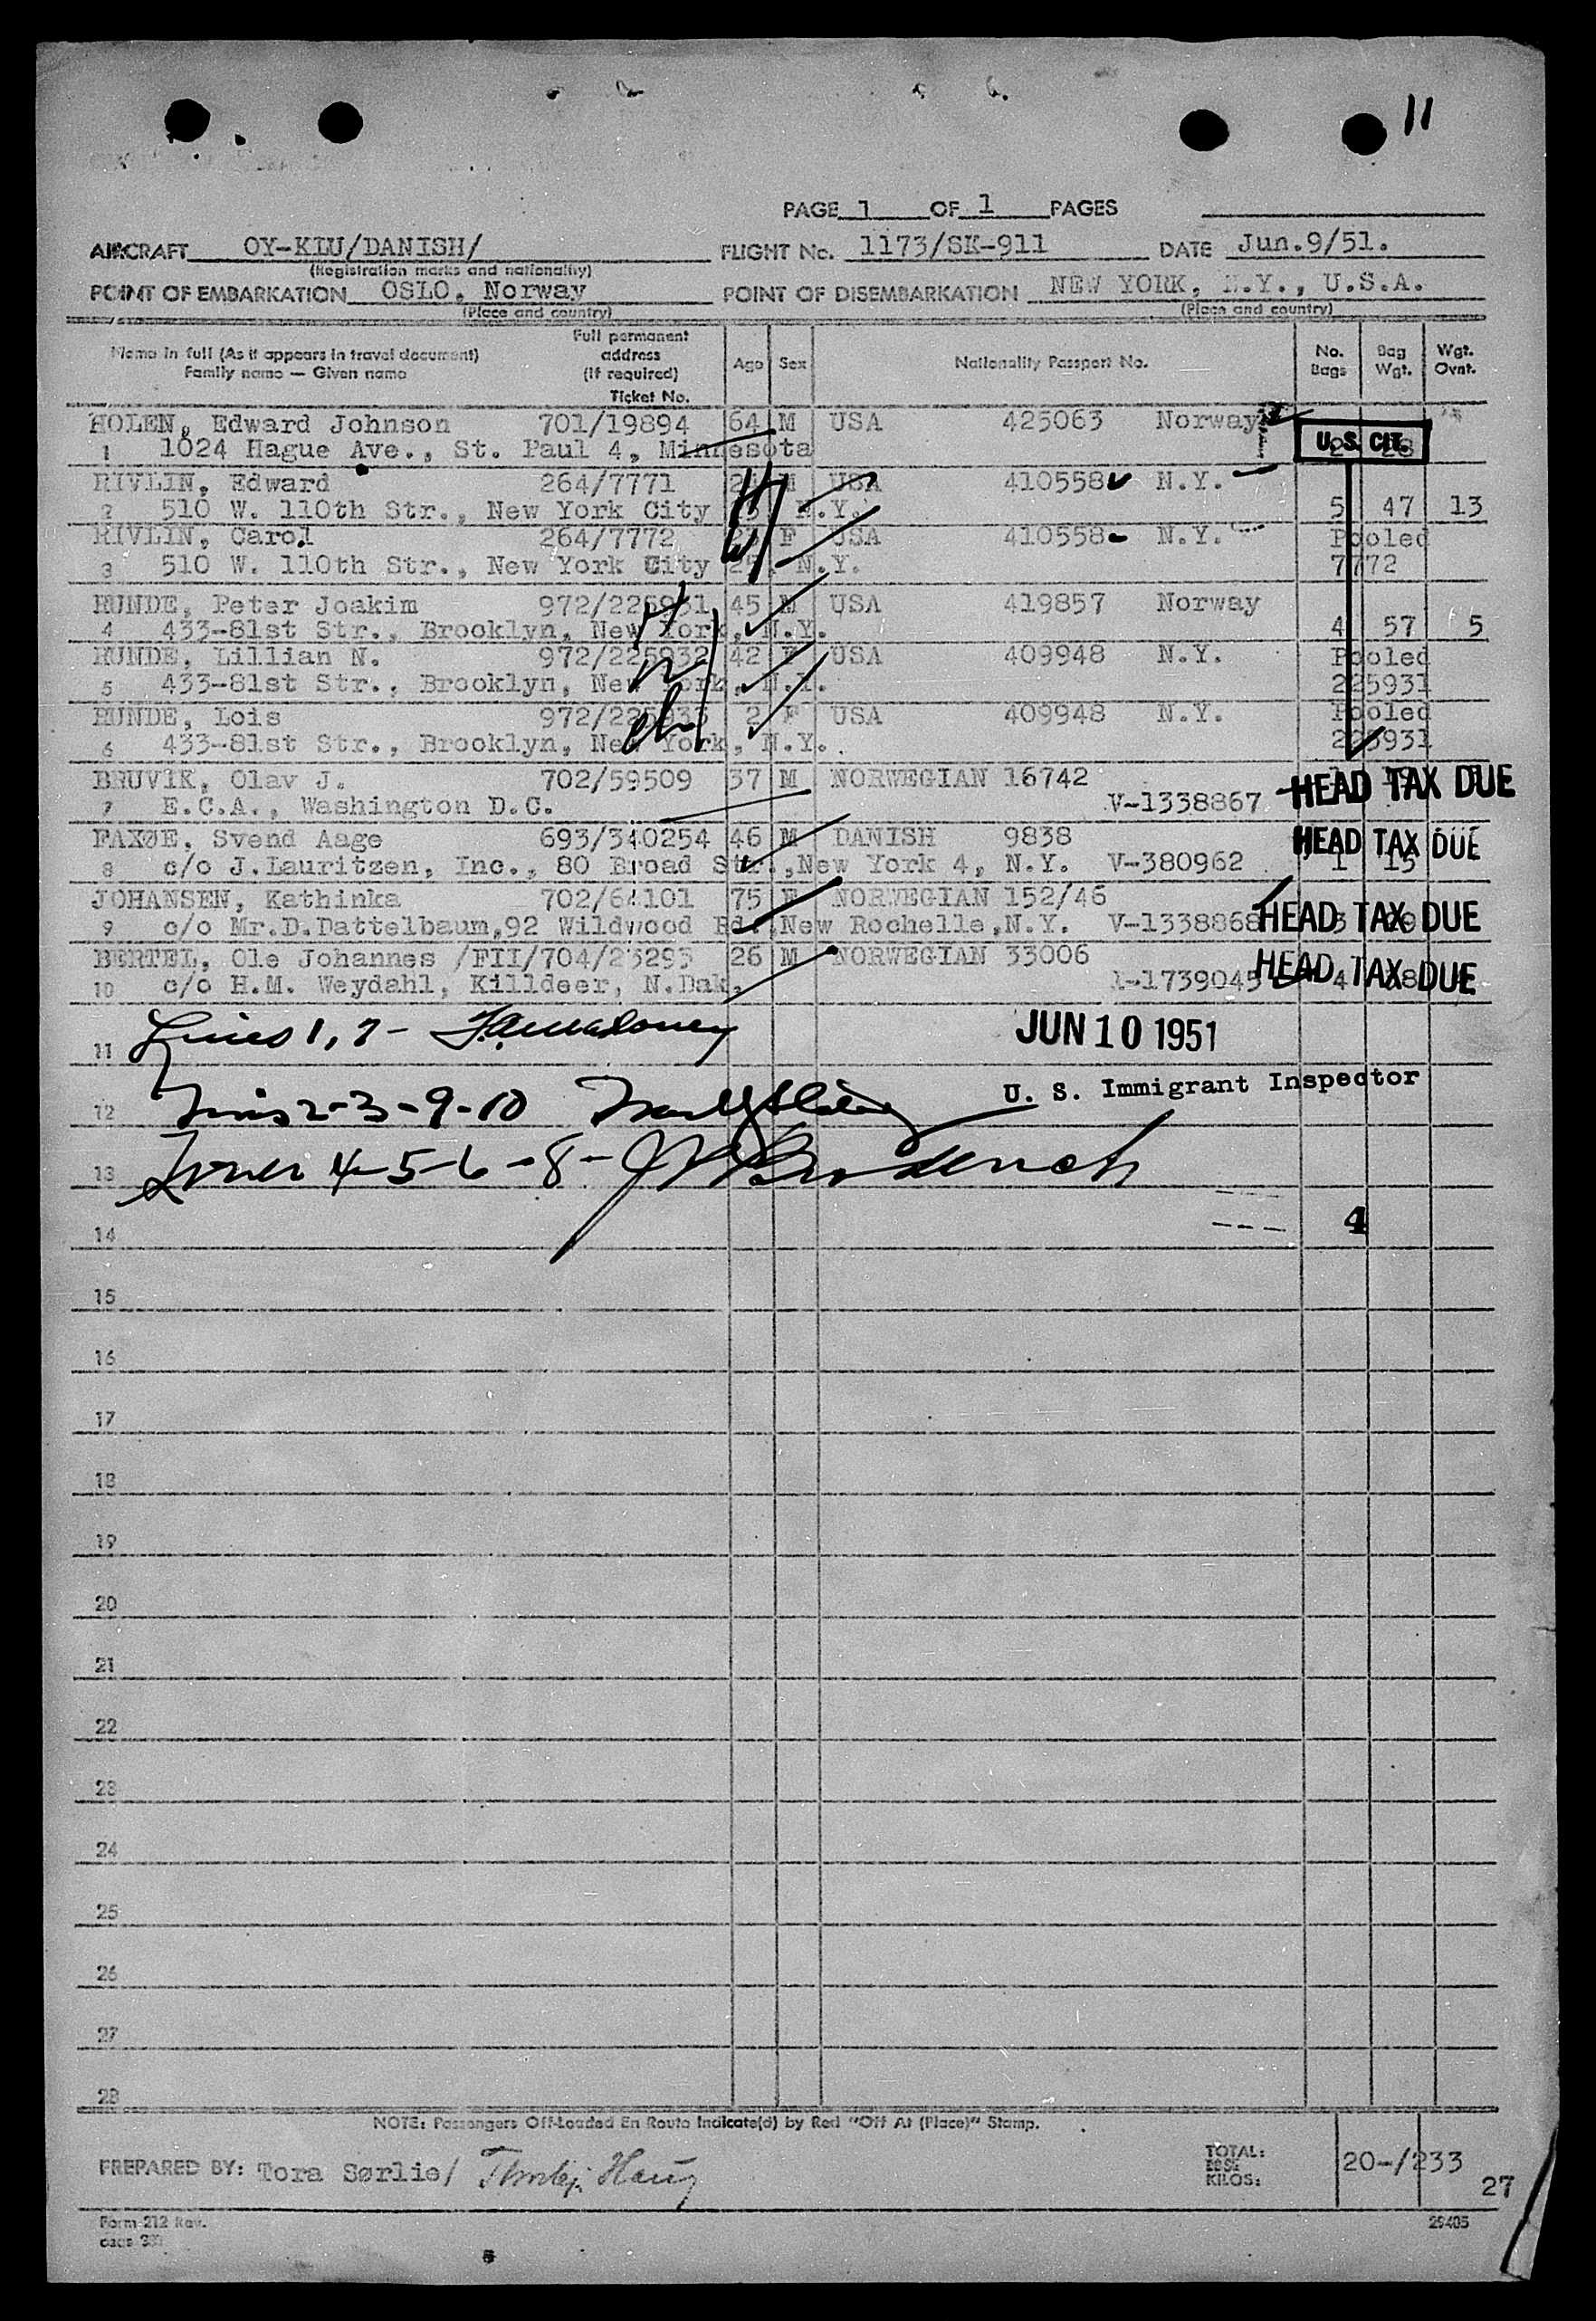 11
PAGE 1 OF 1 PAGES
AIRCRAFT OY-KLU/DANISH/ FLIGHT No. 1173/SK-911 DATE Jun.9/51.
(Registration marks and nationality)
POINT OF EMBARKATION OSLO, Norway POINT OF DISEMBARKATION NEW YORK, N.Y., U.S.A.
(Place and country) (Place and country)
Name in full (As it appears in travel document) Family name — Given name Full permanent address (if required) Ticket No. Age Sex Nationality Passport No. No. Bags Bag Wgt. Wgt. Ovnt.
HOLEN, Edward Johnson 701/19894 64 M USA 425063 Norway
1 1024 Hague Ave., St. Paul 4, Minnesota U.S. CIT.
RIVLIN, Edward 264/7771 M USA 410558 N.Y.
2 510 W. 110th Str., New York City N.Y. 5 47 13
RIVLIN, Carol 264/7772 F USA 410558 N.Y. Pooled
3 510 W. 110th Str., New York City N.Y. 7772
RUNDE, Peter Joakim 972/225931 45 M USA 419857 Norway
4 433-81st Str., Brooklyn, New York, N.Y. 4 57 5
RUNDE, Lillian N. 972/225932 42 F USA 409948 N.Y. Pooled
5 433-81st Str., Brooklyn, New York, N.Y. 225931
RUNDE, Lois 972/225933 2 F USA 409948 N.Y. Pooled
6 433-81st Str., Brooklyn, New York, N.Y. 225931
BRUVIK, Olav J. 702/59509 37 M NORWEGIAN 16742 HEAD TAX DUE
7 E.C.A., Washington D.C. V-1338867
FAXØE, Svend Aage 693/340254 46 M DANISH 9838 HEAD TAX DUE
8 c/o J.Lauritzen, Inc., 80 Broad Str.,New York 4, N.Y. V-380962 1 15
JOHANSEN, Kathinka 702/64101 75 F NORWEGIAN 152/46
9 c/o Mr.D.Dattelbaum,92 Wildwood Rd.,New Rochelle,N.Y. V-1338868 3 HEAD TAX DUE
BERTEL, Ole Johannes /FII/704/23293 26 M NORWEGIAN 33006
10 c/o H.M. Weydahl, Killdeer, N.Dak. 1739045 4 HEAD TAX DUE
11 Lines 1, 7 - JUN 10 1951
12 Lines 2-3-9-10 U. S. Immigrant Inspector
13 Lines 4-5-6-8-
14 4
15
16
17
18
19
20
21
22
23
24
25
26
27
28
NOTE: Passengers Off-Loaded En Route Indicate(d) by Red "Off At (Place)" Stamp.
PREPARED BY: Tora Sørlie/ TOTAL: KILOS: 20-/233
27
Form-212 Rev. 29405